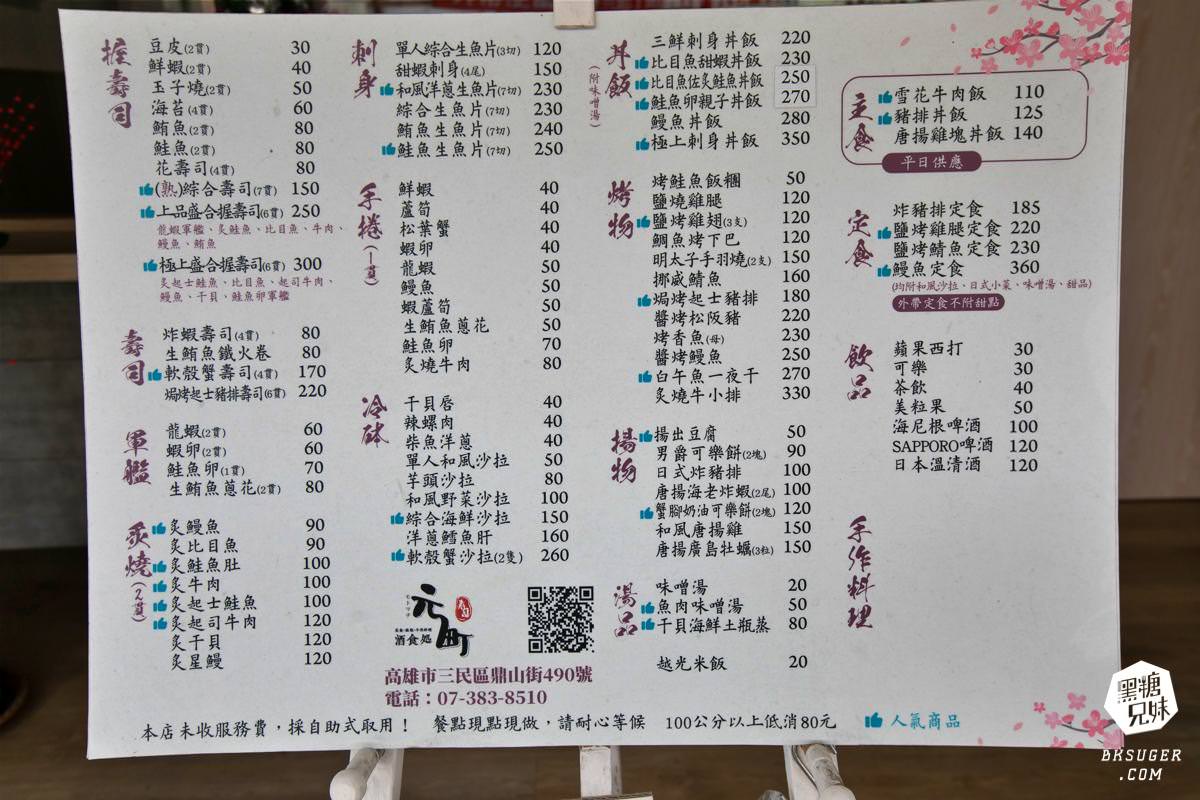 握壽司
豆皮(2貫) 30
鮮蝦(2貫) 40
玉子燒(2貫) 50
海苔(4貫) 60
鮪魚(2貫) 80
鮭魚(2貫) 80
花壽司(4貫) 80
(熟)綜合壽司(7貫) 150
上品盛合握壽司(6貫) 250
龍蝦軍艦、炙鮭魚、比目魚、牛肉、
鰻魚、鮪魚
極上盛合握壽司(6貫) 300
炙起士鮭魚、比目魚、起司牛肉、
鰻魚、干貝、鮭魚卵軍艦
壽司
炸蝦壽司(4貫) 80
生鮪魚鐵火卷 80
軟殼蟹壽司(4貫) 170
焗烤起士豬排壽司(6貫) 220
軍艦
龍蝦(2貫) 60
蝦卵(2貫) 60
鮭魚卵(1貫) 70
生鮪魚蔥花(2貫) 80
炙燒(2貫)
炙鰻魚 90
炙比目魚 90
炙鮭魚肚 100
炙牛肉 100
炙起士鮭魚 100
炙起司牛肉 120
炙干貝 120
炙星鰻 120
刺身
單人綜合生魚片(3切) 120
甜蝦刺身(4尾) 150
和風洋蔥生魚片(7切) 230
綜合生魚片(7切) 230
鮪魚生魚片(7切) 240
鮭魚生魚片(7切) 250
手捲(一支)
鮮蝦 40
蘆筍 40
松葉蟹 40
蝦卵 40
龍蝦 50
鰻魚 50
蝦蘆筍 50
生鮪魚蔥花 50
鮭魚卵 70
炙燒牛肉 80
冷缽
干貝唇 40
辣螺肉 40
柴魚洋蔥 40
單人和風沙拉 50
芋頭沙拉 80
和風野菜沙拉 100
綜合海鮮沙拉 150
洋蔥鱈魚肝 160
軟殼蟹沙拉(2隻) 260
元町
酒食処
高雄市三民區鼎山街490號
電話：07-383-8510
丼飯
(附味噌湯)
三鮮刺身丼飯 220
比目魚甜蝦丼飯 230
比目魚佐炙鮭魚丼飯 250
鮭魚卵親子丼飯 270
鰻魚丼飯 280
極上刺身丼飯 350
烤物
烤鮭魚飯糰 50
鹽燒雞腿 120
鹽烤雞翅(3支) 120
鯛魚烤下巴 120
明太子手羽燒(2支) 150
挪威鯖魚 160
焗烤起士豬排 180
醬烤松阪豬 220
烤香魚(母) 230
醬烤鰻魚 250
白午魚一夜干 270
炙燒牛小排 330
揚物
揚出豆腐 50
男爵可樂餅(2塊) 90
日式炸豬排 100
唐揚海老炸蝦(2尾) 100
蟹腳奶油可樂餅(2塊) 120
和風唐揚雞 150
唐揚廣島牡蠣(3粒) 150
湯品
味噌湯 20
魚肉味噌湯 50
干貝海鮮土瓶蒸 80
越光米飯 20
主食
雪花牛肉飯 110
豬排丼飯 125
唐揚雞塊丼飯 140
平日供應
定食
炸豬排定食 185
鹽烤雞腿定食 220
鹽烤鯖魚定食 230
鰻魚定食 360
(均附和風沙拉、日式小菜、味噌湯、甜品)
外帶定食不附甜點
飲品
蘋果西打 30
可樂 30
茶飲 40
美粒果 50
海尼根啤酒 100
SAPPORO啤酒 120
日本溫清酒 120
手作料理
本店未收服務費，採自助式取用！ 餐點現點現做，請耐心等候 100公分以上低消80元 人氣商品
黑糖兄妹
BKSUGER
.COM